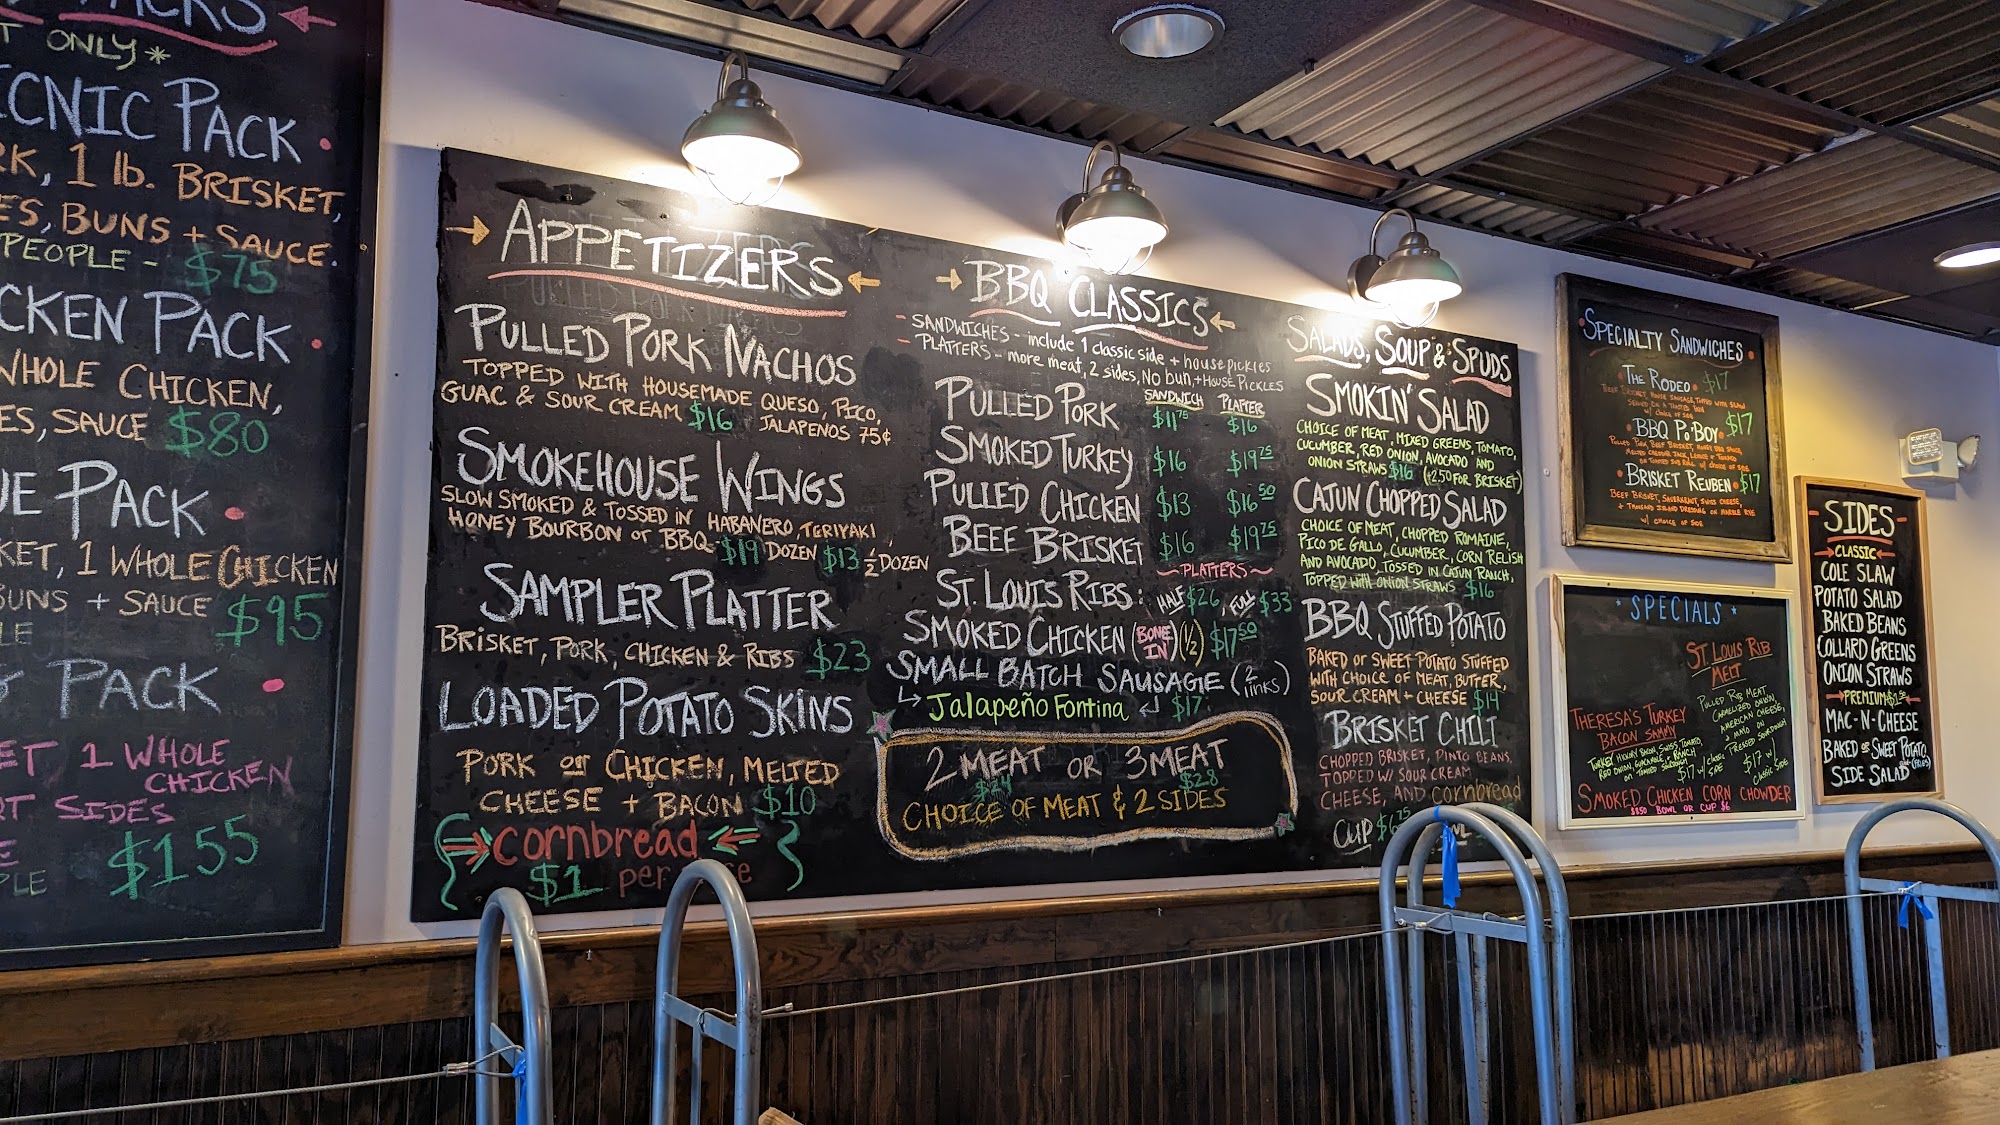 PACKS
ONLY*
CNIC PACK
RK, 1 lb. BRISKET,
ES, BUNS + SAUCE.
PEOPLE - $75
CKEN PACK
WHOLE CHICKEN,
ES, SAUCE $80
UE PACK
KET, 1 WHOLE CHICKEN
BUNS + SAUCE $95
LE
PACK
ET 1 WHOLE
CHICKEN
RT SIDES
PLE $155
APPETIZERS
PULLED PORK NACHOS
TOPPED WITH HOUSEMADE QUESO, PICO,
GUAC & SOUR CREAM $16 JALAPENOS 75¢
SMOKEHOUSE WINGS
SLOW SMOKED & TOSSED IN HABANERO, TERIYAKI,
HONEY BOURBON or BBQ- $19 DOZEN $13 1/2 DOZEN
SAMPLER PLATTER
BRISKET, PORK, CHICKEN & RIBS $23
LOADED POTATO SKINS
PORK or CHICKEN, MELTED
CHEESE + BACON $10
cornbread
$1 per
BBQ CLASSICS
- SANDWICHES - include 1 classic side + house pickles
- PLATTERS - more meat, 2 sides, No bun, + HOUSE PICKLES
SANDWICH PLATTER
PULLED PORK $11.75 $16
SMOKED TURKEY $16 $19.75
PULLED CHICKEN $13 $16.50
BEEF BRISKET $16 $19.75
~PLATTERS~
ST. LOUIS RIBS: HALF $26, FULL $33
SMOKED CHICKEN (BONE IN) (1/2) $17.50
SMALL BATCH SAUSAGE (2 links)
Jalapeño Fontina $17
2 MEAT OR 3 MEAT
$24 $28
CHOICE OF MEAT & 2 SIDES
SALADS, SOUP & SPUDS
SMOKIN' SALAD
CHOICE OF MEAT, MIXED GREENS, TOMATO,
CUCUMBER, RED ONION, AVOCADO AND
ONION STRAWS $16 (+2.50 FOR BRISKET)
CAJUN CHOPPED SALAD
CHOICE OF MEAT, CHOPPED ROMAINE,
PICO DE GALLO, CUCUMBER, CORN RELISH
AND AVOCADO, TOSSED IN CAJUN RANCH,
TOPPED WITH ONION STRAWS $16
BBQ STUFFED POTATO
BAKED OR SWEET POTATO STUFFED
WITH CHOICE OF MEAT, BUTTER,
SOUR CREAM + CHEESE $14
BRISKET CHILI
CHOPPED BRISKET, PINTO BEANS,
TOPPED W/ SOUR CREAM
CHEESE, AND cornbread
CUP $6.75
SPECIALTY SANDWICHES
THE RODEO $17
BEEF BRISKET, HOUSE SAUCE, TOPPED WITH SLAW
SERVED ON A TOASTED BUN
W/ CHOICE OF SIDE
BBQ PO'BOY $17
PULLED PORK, BEEF BRISKET, HONEY BBQ SAUCE,
ROLL W/ CHOICE OF SIDE
BRISKET REUBEN $17
BEEF BRISKET, SAUERKRAUT, SWISS CHEESE,
+ THOUSAND ISLAND DRESSING ON MARBLE RYE
W/ CHOICE OF SIDE
SPECIALS
ST LOUIS RIB
MELT
PULLED RIB MEAT,
CARMELIZED ONION,
AMERICAN CHEESE,
+ MAYO
PRESSED SOURDOUGH
$17 w/
classic SIDE
THERESA'S TURKEY
BACON SAMMY
TURKEY, HICKORY BACON, SWISS, TOMATO,
RED ONION, GUACAMOLE, + RANCH
ON TOASTED SOURDOUGH
$17 w/ classic SIDE
SMOKED CHICKEN CORN CHOWDER
$8.50 BOWL OR CUP $6
SIDES
CLASSIC
COLE SLAW
POTATO SALAD
BAKED BEANS
COLLARD GREENS
ONION STRAWS
PREMIUM
MAC-N-CHEESE
BAKED or SWEET POTATO
SIDE SALAD